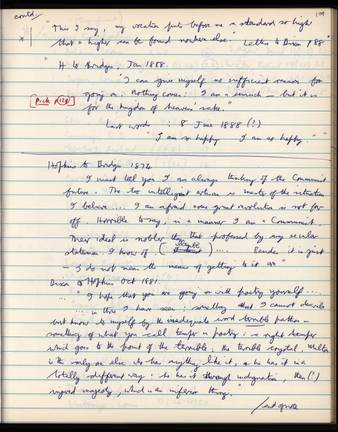 contd/
"This I say, my vocation puts before me a standard so high
that a higher can be found nowhere else" Letter to Dixon /88
H to Bridges, Jan 1888.
"I can give myself no sufficient reason for
going on. Nothing comes: I am a eunuch – but it is
for the kingdom of heaven's sake."
Last words: 8 June 1888 (!)
"I am so happy I am so happy."
Hopkins to Bridges 1872
I must tell you I am always thinking of the Communist
future. The too intelligent artisan is master of the situation
I believe... I am afraid some great revolution is not far
off. Horrible to say, in a manner I am a Communist.
Their ideal is nobler than that professed by any secular
statesman I know of. ( .... Besides it is just
– I do not mean the means of getting to it are"
Dixon to Hopkins Oct 1881.
"I hope that you are going on with poetry yourself ....
... in those I have seen, something that I cannot describe
but know to myself by the inadequate word terrible pathos –
something of what you call temper in poetry: a right temper
which goes to the point of the terrible; the terrible crystal. Milton
is the only one else who has anything like it, & he has it in a
totally different way: he has it through indignation, thro (!)
injured majesty, which is an inferior thing."